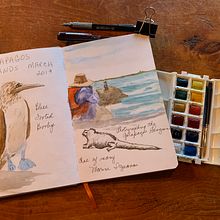 GALAPAGOS
ISLANDS MARCH
2019
Blue
Footed
Booby
Photographing the
Galapagos Penguins
One of many
Marine Iguanas